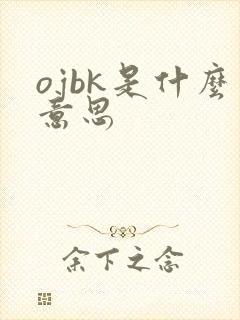 ojbk是什麼
意思
余下之念